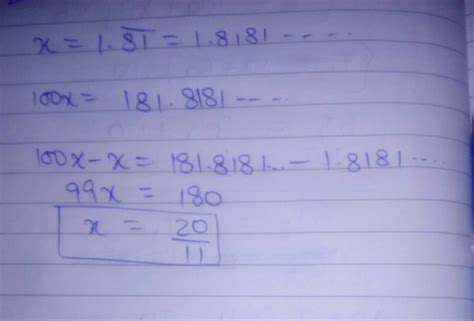 x = 1.8̅1̅ = 1.8181 - - - - -
100x = 181.8181 - - - .
100x - x = 181.8181... - 1.8181 ....
99x = 180
x = 20/11